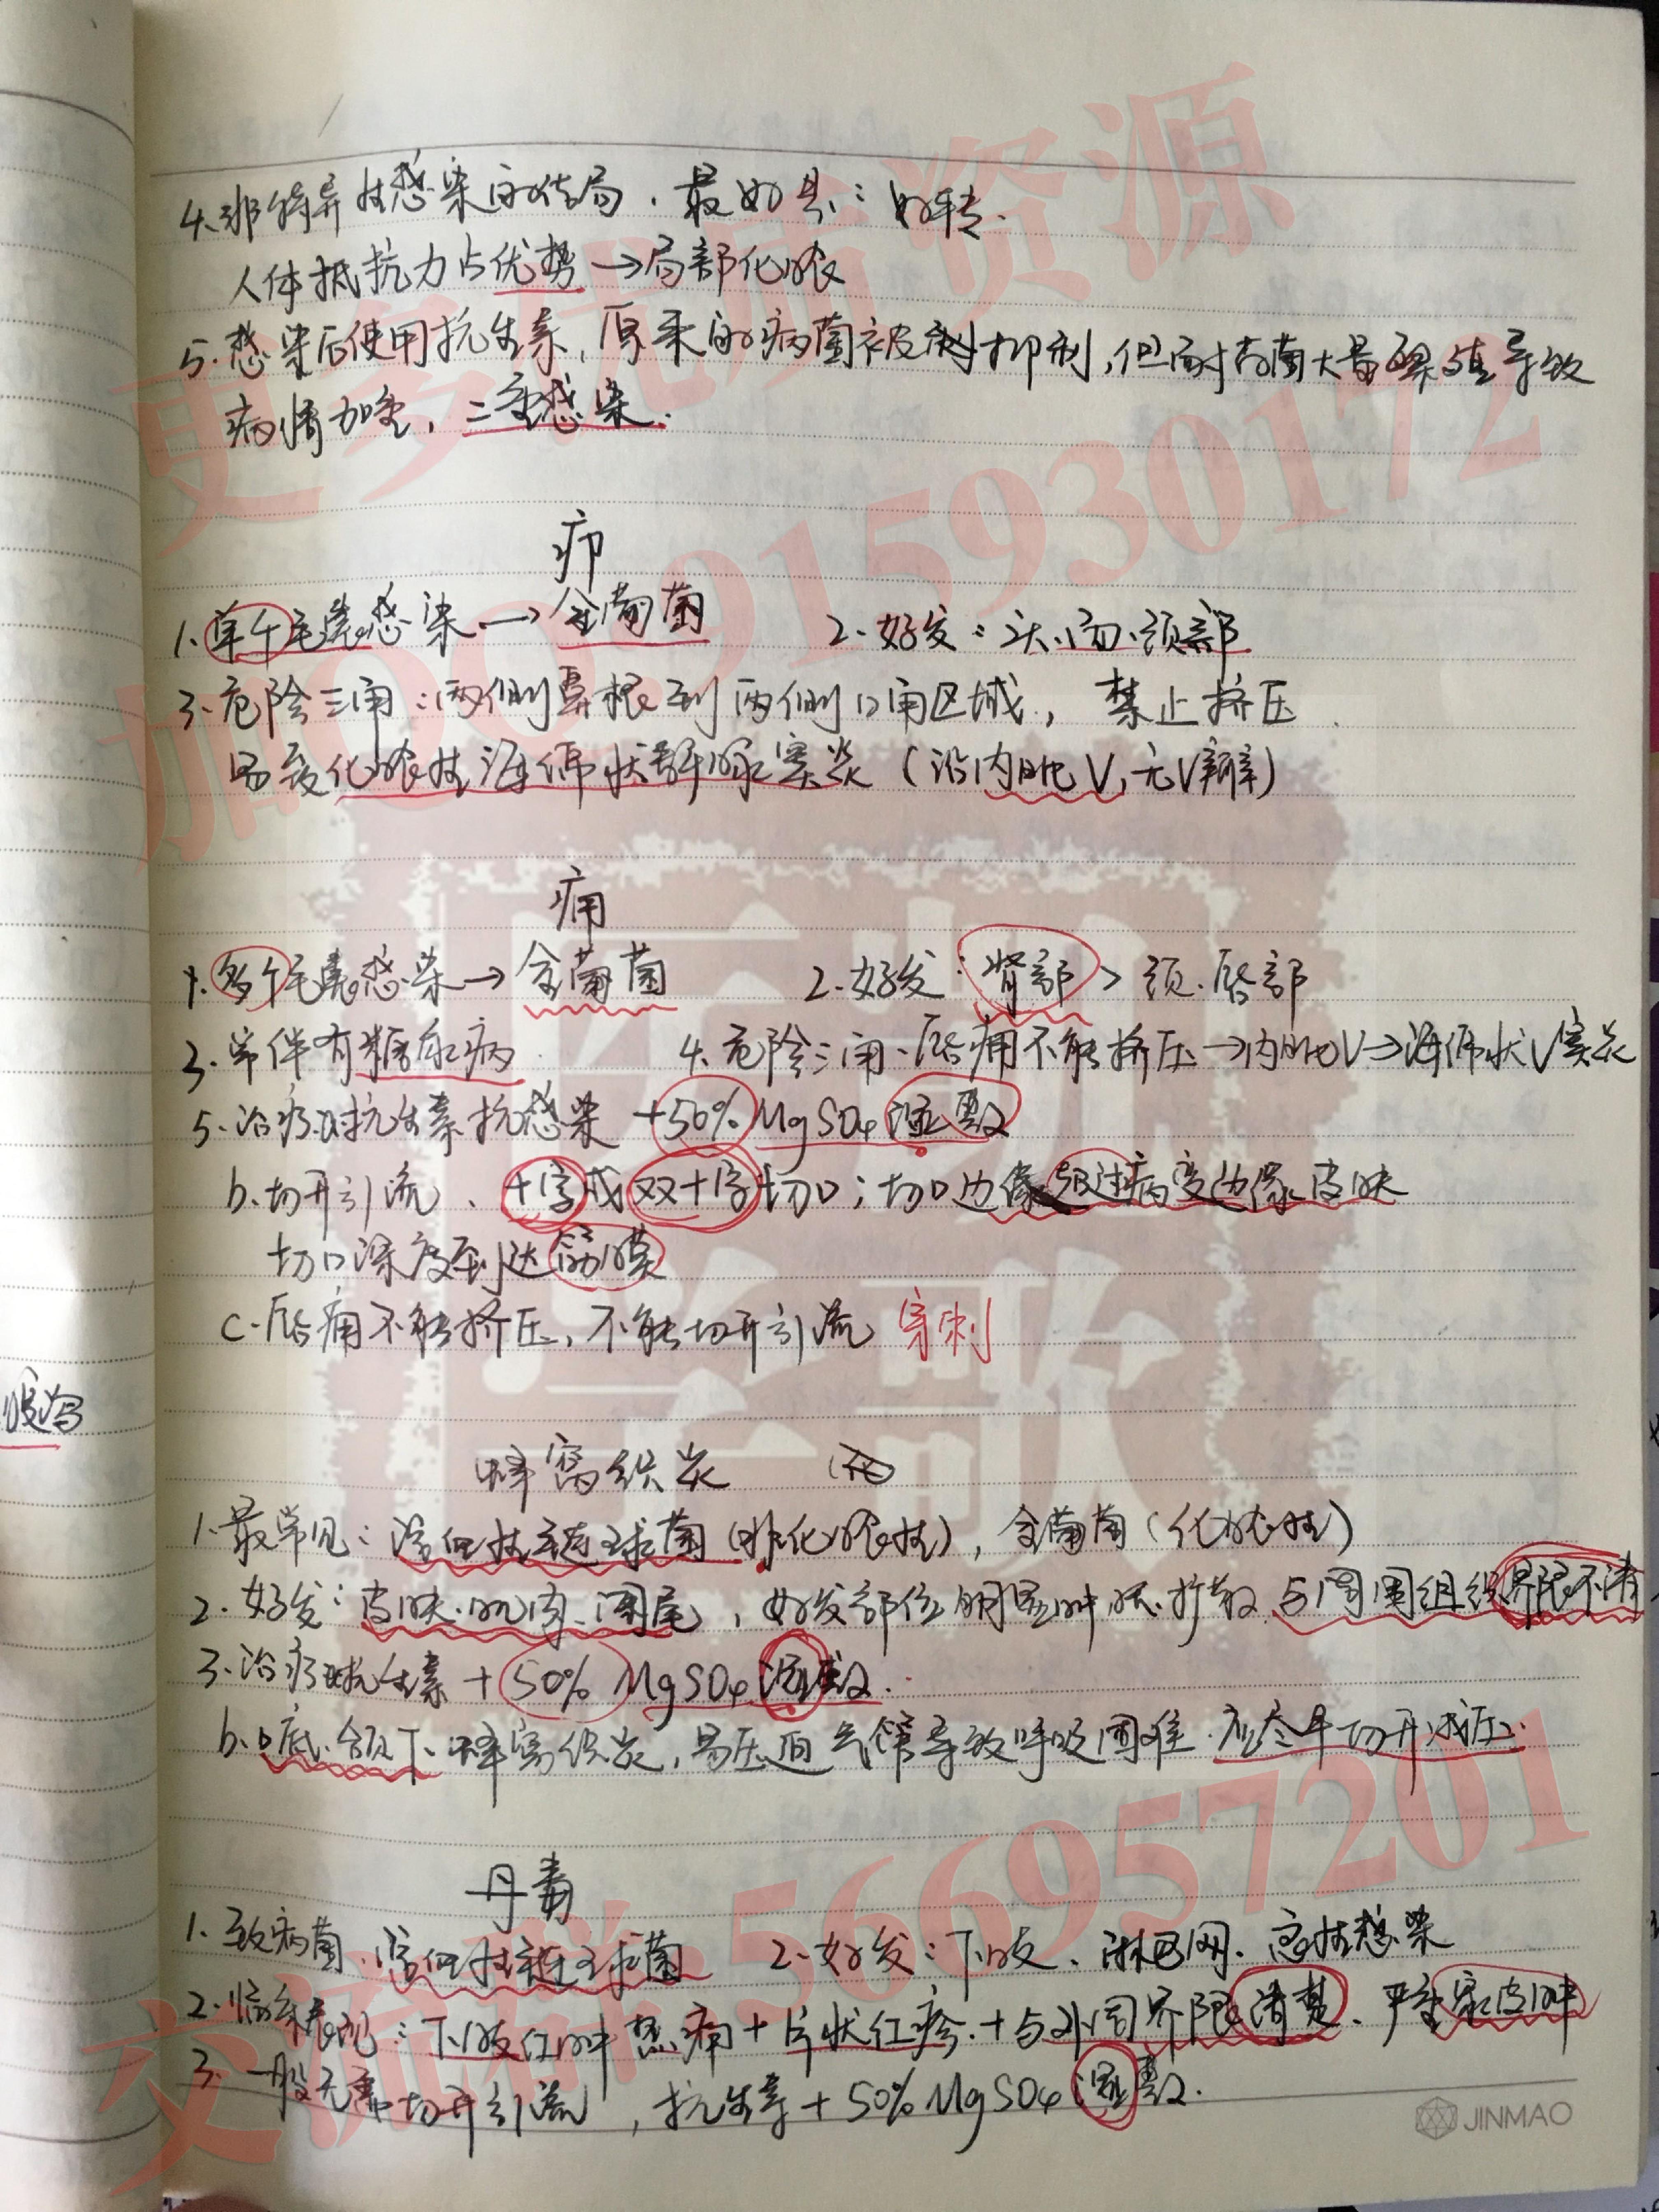 4.非特异性感染的结局.最好是:好转.
人体抵抗力占优势→局部化脓
5.感染后使用抗生素,原来的病菌被抑制,但耐药菌大量繁殖导致
病情加重,二重感染.
疖
1.单个毛囊感染→金葡菌 2.好发:头.面.颈部
3.危险三角:两侧鼻根到两侧口角区域,禁止挤压.
易致化脓性海绵状静脉窦炎(沿内眦V,无V瓣)
痈
1.多个毛囊感染→金葡菌 2.好发:背部>颈.唇部
3.常伴有糖尿病 4.危险三角.唇痈不能挤压→内眦V→海绵状V窦炎
5.治疗:a.抗生素抗感染+50%MgSO4湿敷
b.切开引流、+字或双十字切口;切口边缘超过病变边缘皮肤
切口深度到达筋膜
c.唇痈不能挤压,不能切开引流 穿刺
暖泻
蜂窝织炎
1.最常见:溶血性链球菌(非化脓性),金葡菌(化脓性)
2.好发:皮肤.肌肉.阑尾,好发部位明显肿胀.扩散.与周围组织界限不清
3.治疗:a.抗生素+50%MgSO4湿敷.
b.口底.颌下.蜂窝织炎,易压迫气管导致呼吸困难.应尽早切开减压.
丹毒
1.致病菌.溶血性链球菌 2.好发:下肢、淋巴网.急性感染
2.临床表现:下肢红肿热痛+片状红疹.+与外周界限清楚、严重象皮肿
3.一般无需切开引流,抗生素+50%MgSO4湿敷.
JINMAO
更多优质资源
加QQ:915930172
医朝
会歌
交流群:566957201